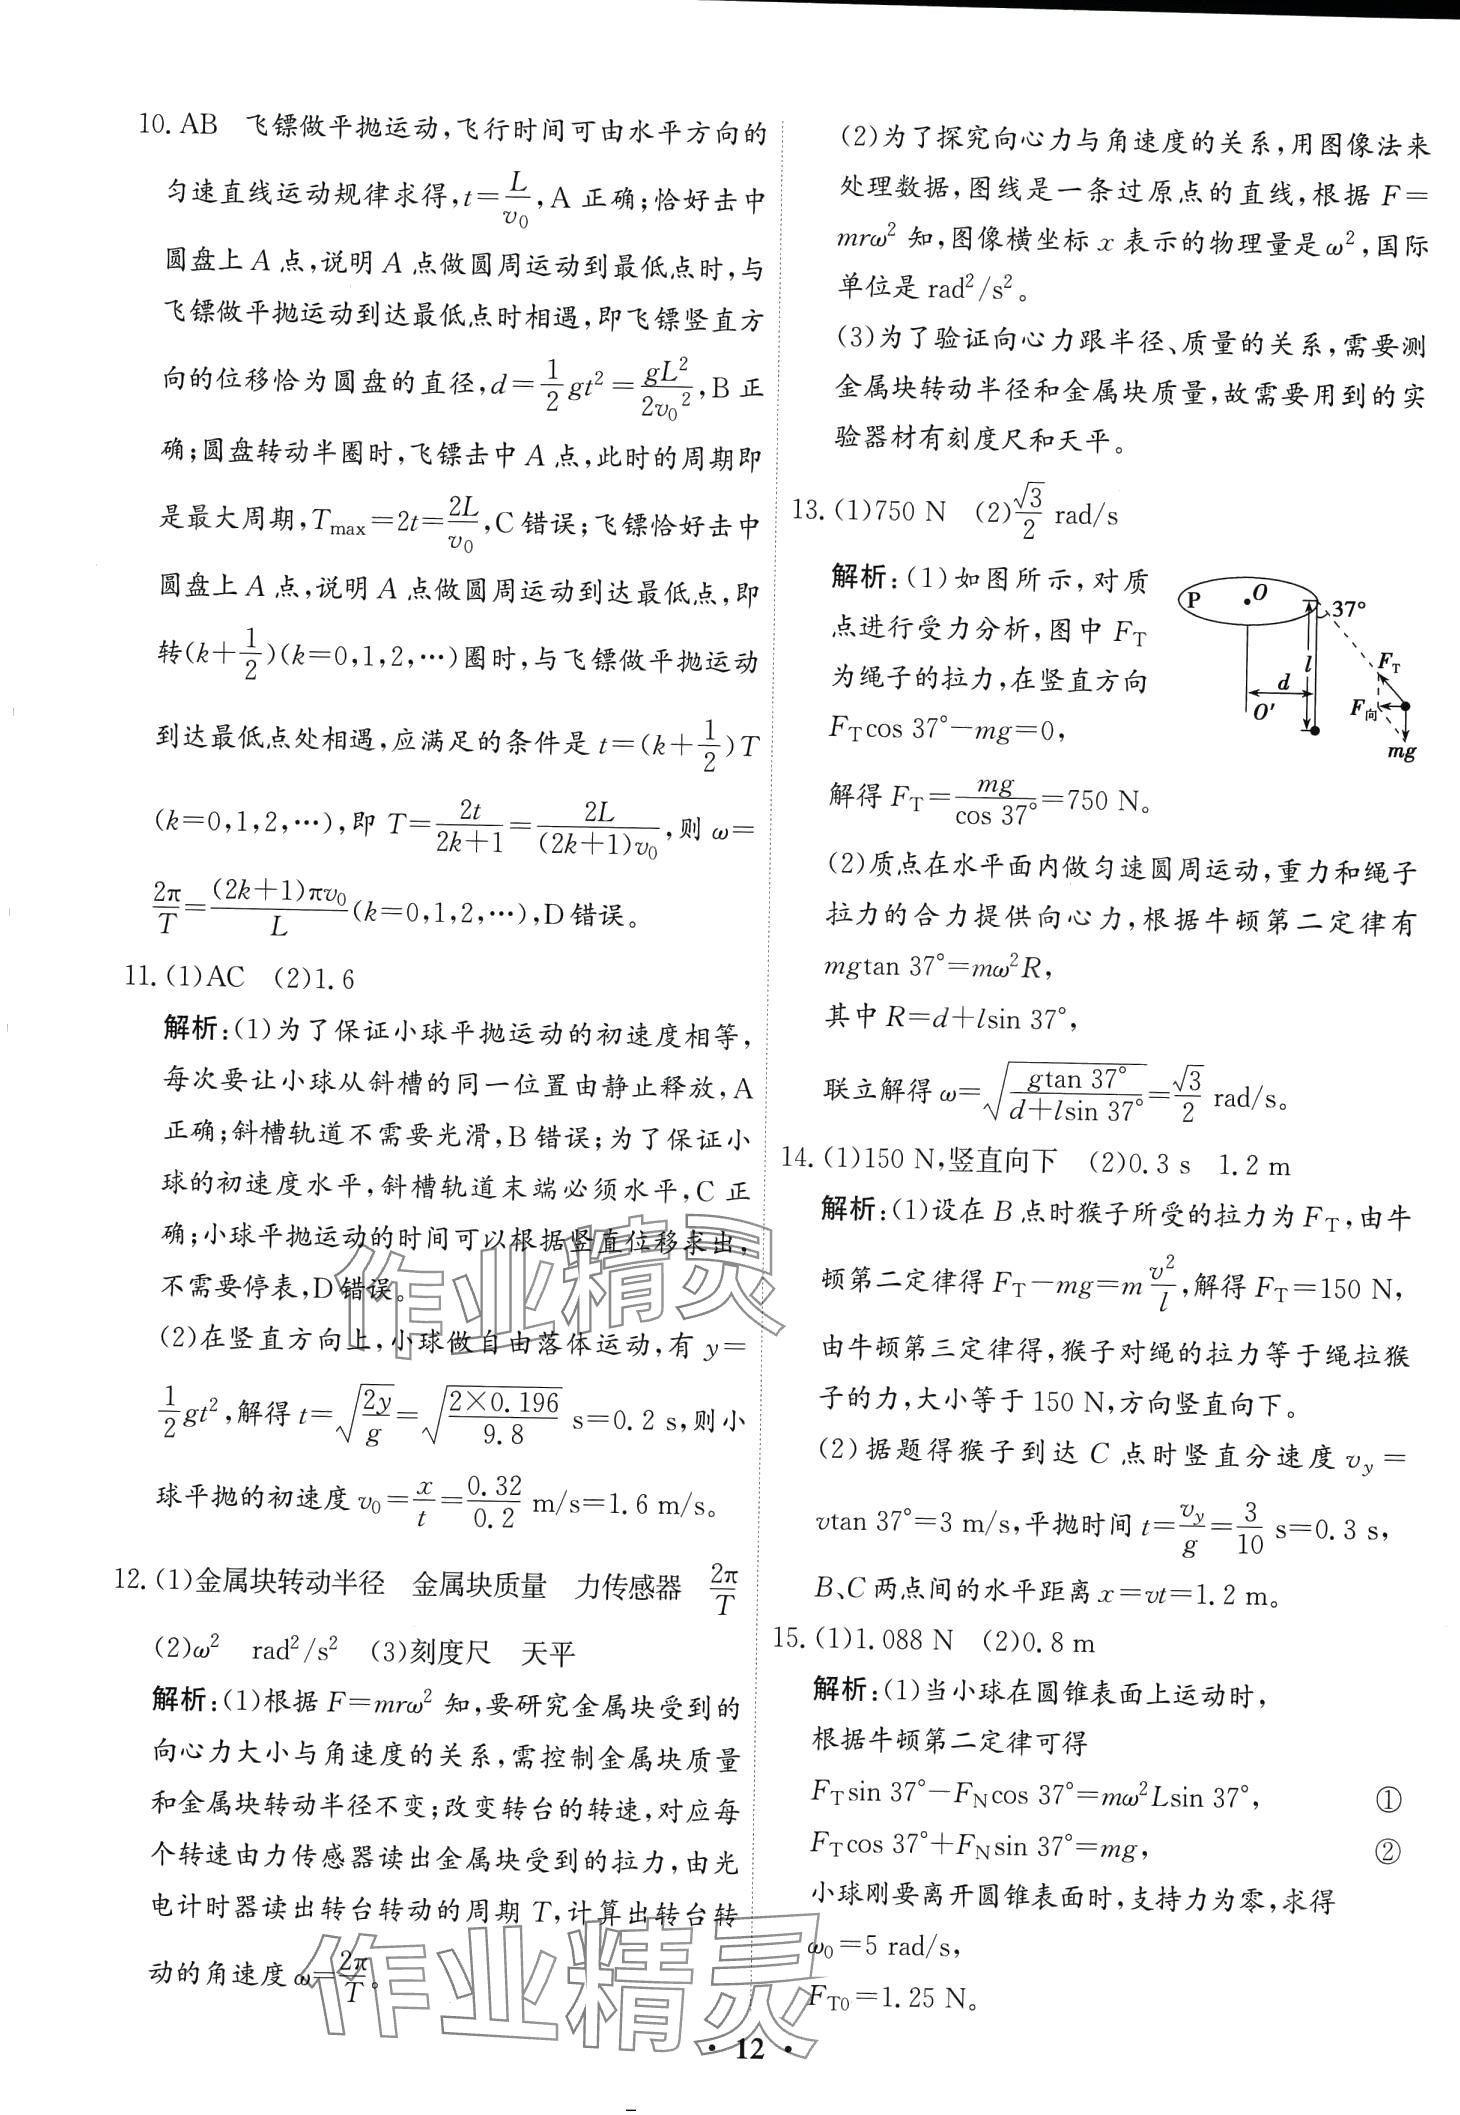 10. AB　飞镖做平抛运动,飞行时间可由水平方向的
匀速直线运动规律求得,t=L/v₀,A 正确;恰好击中
圆盘上 A 点,说明 A 点做圆周运动到最低点时,与
飞镖做平抛运动到达最低点时相遇,即飞镖竖直方
向的位移恰为圆盘的直径,d=1/2 gt²=gL²/2v₀²,B 正
确;圆盘转动半圈时,飞镖击中 A 点,此时的周期即
是最大周期,Tmax=2t=2L/v₀,C 错误;飞镖恰好击中
圆盘上 A 点,说明 A 点做圆周运动到达最低点,即
转(k+1/2)(k=0,1,2,…)圈时,与飞镖做平抛运动
到达最低点处相遇,应满足的条件是 t=(k+1/2)T
(k=0,1,2,…),即 T=2t/(2k+1)=2L/((2k+1)v₀),则 ω=
2π/T=(2k+1)πv₀/L(k=0,1,2,…),D 错误。
11. (1)AC　(2)1.6
解析:(1)为了保证小球平抛运动的初速度相等,
每次要让小球从斜槽的同一位置由静止释放,A
正确;斜槽轨道不需要光滑,B 错误;为了保证小
球的初速度水平,斜槽轨道末端必须水平,C 正
确;小球平抛运动的时间可以根据竖直位移求出,
不需要停表,D 错误。
(2)在竖直方向上,小球做自由落体运动,有 y=
1/2 gt²,解得 t=√(2y/g)=√(2×0.196/9.8) s=0.2 s,则小
球平抛的初速度 v₀=x/t=0.32/0.2 m/s=1.6 m/s。
12. (1)金属块转动半径　金属块质量　力传感器　2π/T
(2)ω²　rad²/s²　(3)刻度尺　天平
解析:(1)根据 F=mrω² 知,要研究金属块受到的
向心力大小与角速度的关系,需控制金属块质量
和金属块转动半径不变;改变转台的转速,对应每
个转速由力传感器读出金属块受到的拉力,由光
电计时器读出转台转动的周期 T,计算出转台转
动的角速度 ω=2π/T。
(2)为了探究向心力与角速度的关系,用图像法来
处理数据,图线是一条过原点的直线,根据 F=
mrω² 知,图像横坐标 x 表示的物理量是 ω²,国际
单位是 rad²/s²。
(3)为了验证向心力跟半径、质量的关系,需要测
金属块转动半径和金属块质量,故需要用到的实
验器材有刻度尺和天平。
13. (1)750 N　(2)√3/2 rad/s
解析:(1)如图所示,对质
点进行受力分析,图中 F_T
为绳子的拉力,在竖直方向
F_T cos 37°−mg=0,
解得 F_T=mg/cos 37°=750 N。
P
O
37°
l
F_T
d
F向
O′
mg
(2)质点在水平面内做匀速圆周运动,重力和绳子
拉力的合力提供向心力,根据牛顿第二定律有
mgtan 37°=mω²R,
其中 R=d+lsin 37°,
联立解得 ω=√(gtan 37°/(d+lsin 37°))=√3/2 rad/s。
14. (1)150 N,竖直向下　(2)0.3 s　1.2 m
解析:(1)设在 B 点时猴子所受的拉力为 F_T,由牛
顿第二定律得 F_T−mg=m v²/l,解得 F_T=150 N,
由牛顿第三定律得,猴子对绳的拉力等于绳拉猴
子的力,大小等于 150 N,方向竖直向下。
(2)据题得猴子到达 C 点时竖直分速度 v_y=
vtan 37°=3 m/s,平抛时间 t=v_y/g=3/10 s=0.3 s,
B、C 两点间的水平距离 x=vt=1.2 m。
15. (1)1.088 N　(2)0.8 m
解析:(1)当小球在圆锥表面上运动时,
根据牛顿第二定律可得
F_T sin 37°−F_N cos 37°=mω²Lsin 37°,　①
F_T cos 37°+F_N sin 37°=mg,　②
小球刚要离开圆锥表面时,支持力为零,求得
ω₀=5 rad/s,
F_T0=1.25 N。
作业精灵
作业精灵
· 12 ·